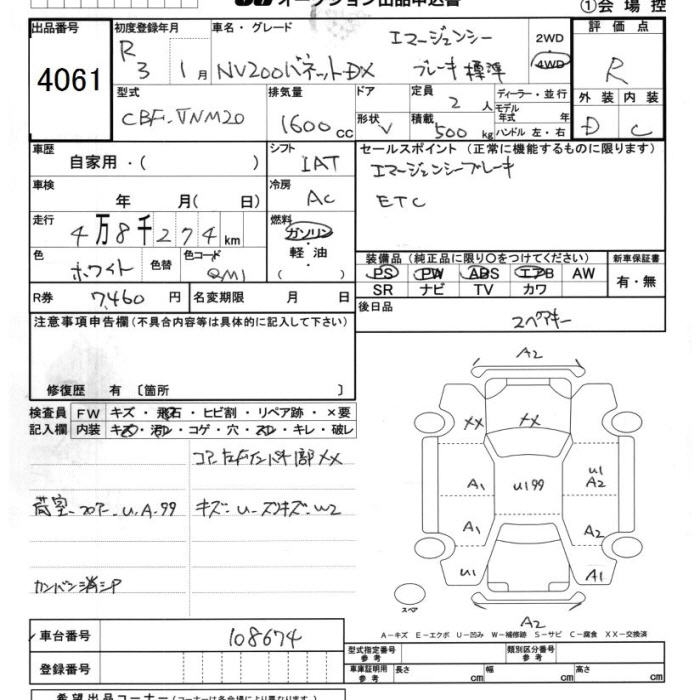 オークション出品申込書
①会場控
出品番号
4061
初度登録年月
R3 1月
車名・グレード
エマージェンシー
NV200バネットDX ブレーキ標準
2WD
4WD
評価点
R
型式
CBF-VNM20
排気量
1600cc
ドア
形状 V
定員 2人
積載 500kg
ディーラー・並行
モデル年式 年
ハンドル 左・右
外装 内装
D C
車歴
自家用・( )
シフト
IAT
セールスポイント(正常に機能するものに限ります)
エマージェンシーブレーキ
ETC
車検
年 月(日)
冷房
AC
走行
4万8千274km
燃料
ガソリン
軽油
( )
色
ホワイト
色替
色コード
QM1
装備品(純正品に限り○をつけてください)
新車保証書
PS PW ABS エアB AW
有・無
SR ナビ TV カワ
R券 7,460円
名変期限 月 日
後日品
スペアキー
注意事項申告欄(不具合内容等は具体的に記入して下さい)
修復歴 有〔箇所 〕
検査員 FW キズ・飛石・ヒビ割・リペア跡・×要
記入欄 内装 キズ・汚レ・コゲ・穴・スレ・キレ・破レ
荷室・フロアー・U.A.99
キズ・U・ズレキズ・W2
カンバン消シP
A2
XX
XX
A1
U199
U1
A2
A1
A2
U1
A1
スペア
A2
A-キズ E-エクボ U-凹み W-補修跡 S-サビ C-腐食 XX-交換済
車台番号 108674
登録番号
型式指定番号 参考
類別区分番号 参考
車庫証明用 参考 長さ cm 幅 cm 高さ cm
希望出品コーナー(コーナーは各会場により異なります。)